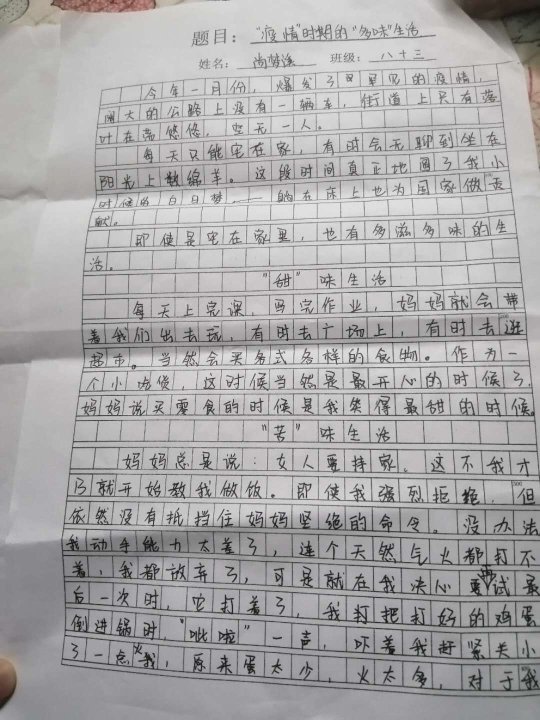 题目："疫情"时期的"多味"生活
姓名：尚梦溪 班级：八十三
今年一月份，爆发了严重的疫情，
阔大的公路上没有一辆车，街道上只有落
叶在荡悠悠，空无一人。
每天只能宅在家，有时会无聊到坐在
阳光上数绵羊。这段时间真正地圆了我小
时候的白日梦，——躺在床上也为国家做贡
献。
即使是宅在家里，也有多滋多味的生
活。
"甜"味生活
每天上完课，写完作业，妈妈就会带
着我们出去玩，有时去广场上，有时去逛
超市。当然会买各式各样的食物。作为一
个小吃货，这时候当然是最开心的时候了，
妈妈说买零食的时候是我笑得最甜的时候。
"苦"味生活
妈妈总是说：女人要持家。这不我才
13就开始教我做饭。即使我强烈拒绝，但
依然没有抵挡住妈妈坚绝的命令。没办法
我动手能力太差了，连个天然气火都打不
着，我都放弃了，可是就在我决心要再试最
后一次时，它打着了，我打把打好的鸡蛋
倒进锅时，"呲啦"一声，吓着我赶紧关小
了一点火，原来蛋太少，火太多，对于我